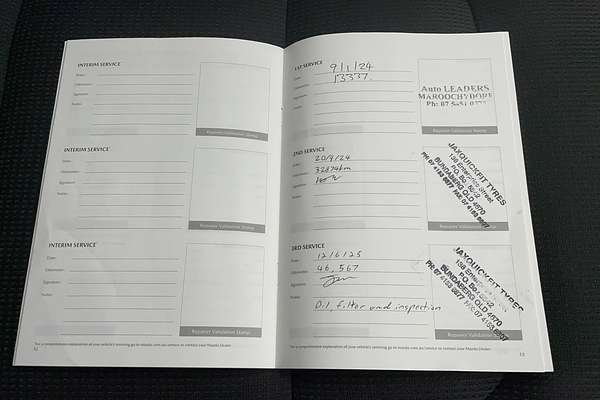 INTERIM SERVICE
Date:
Odometer:
Signature:
Notes:
Repairer Validation Stamp
INTERIM SERVICE
Date:
Odometer:
Signature:
Notes:
Repairer Validation Stamp
INTERIM SERVICE
Date:
Odometer:
Signature:
Notes:
Repairer Validation Stamp
For a comprehensive explanation of your vehicle's servicing go to mazda.com.au/service or contact your Mazda Dealer.
1ST SERVICE
Date: 9/1/24
Odometer: 13337.
Signature:
Notes:
Auto LEADERS
MAROOCHYDORE
Repairer Validation Stamp
2ND SERVICE
Date: 20/9/24
Odometer: 32874km
Signature:
Notes:
JAXQUICKFIT TYRES
BUNDABERG QLD 4670
Repairer Validation Stamp
3RD SERVICE
Date: 12/6/25
Odometer: 46,567
Signature:
Notes:
Oil, filter and inspection
JAXQUICKFIT TYRES
BUNDABERG QLD 4670
Repairer Validation Stamp
For a comprehensive explanation of your vehicle's servicing go to mazda.com.au/service or contact your Mazda Dealer.